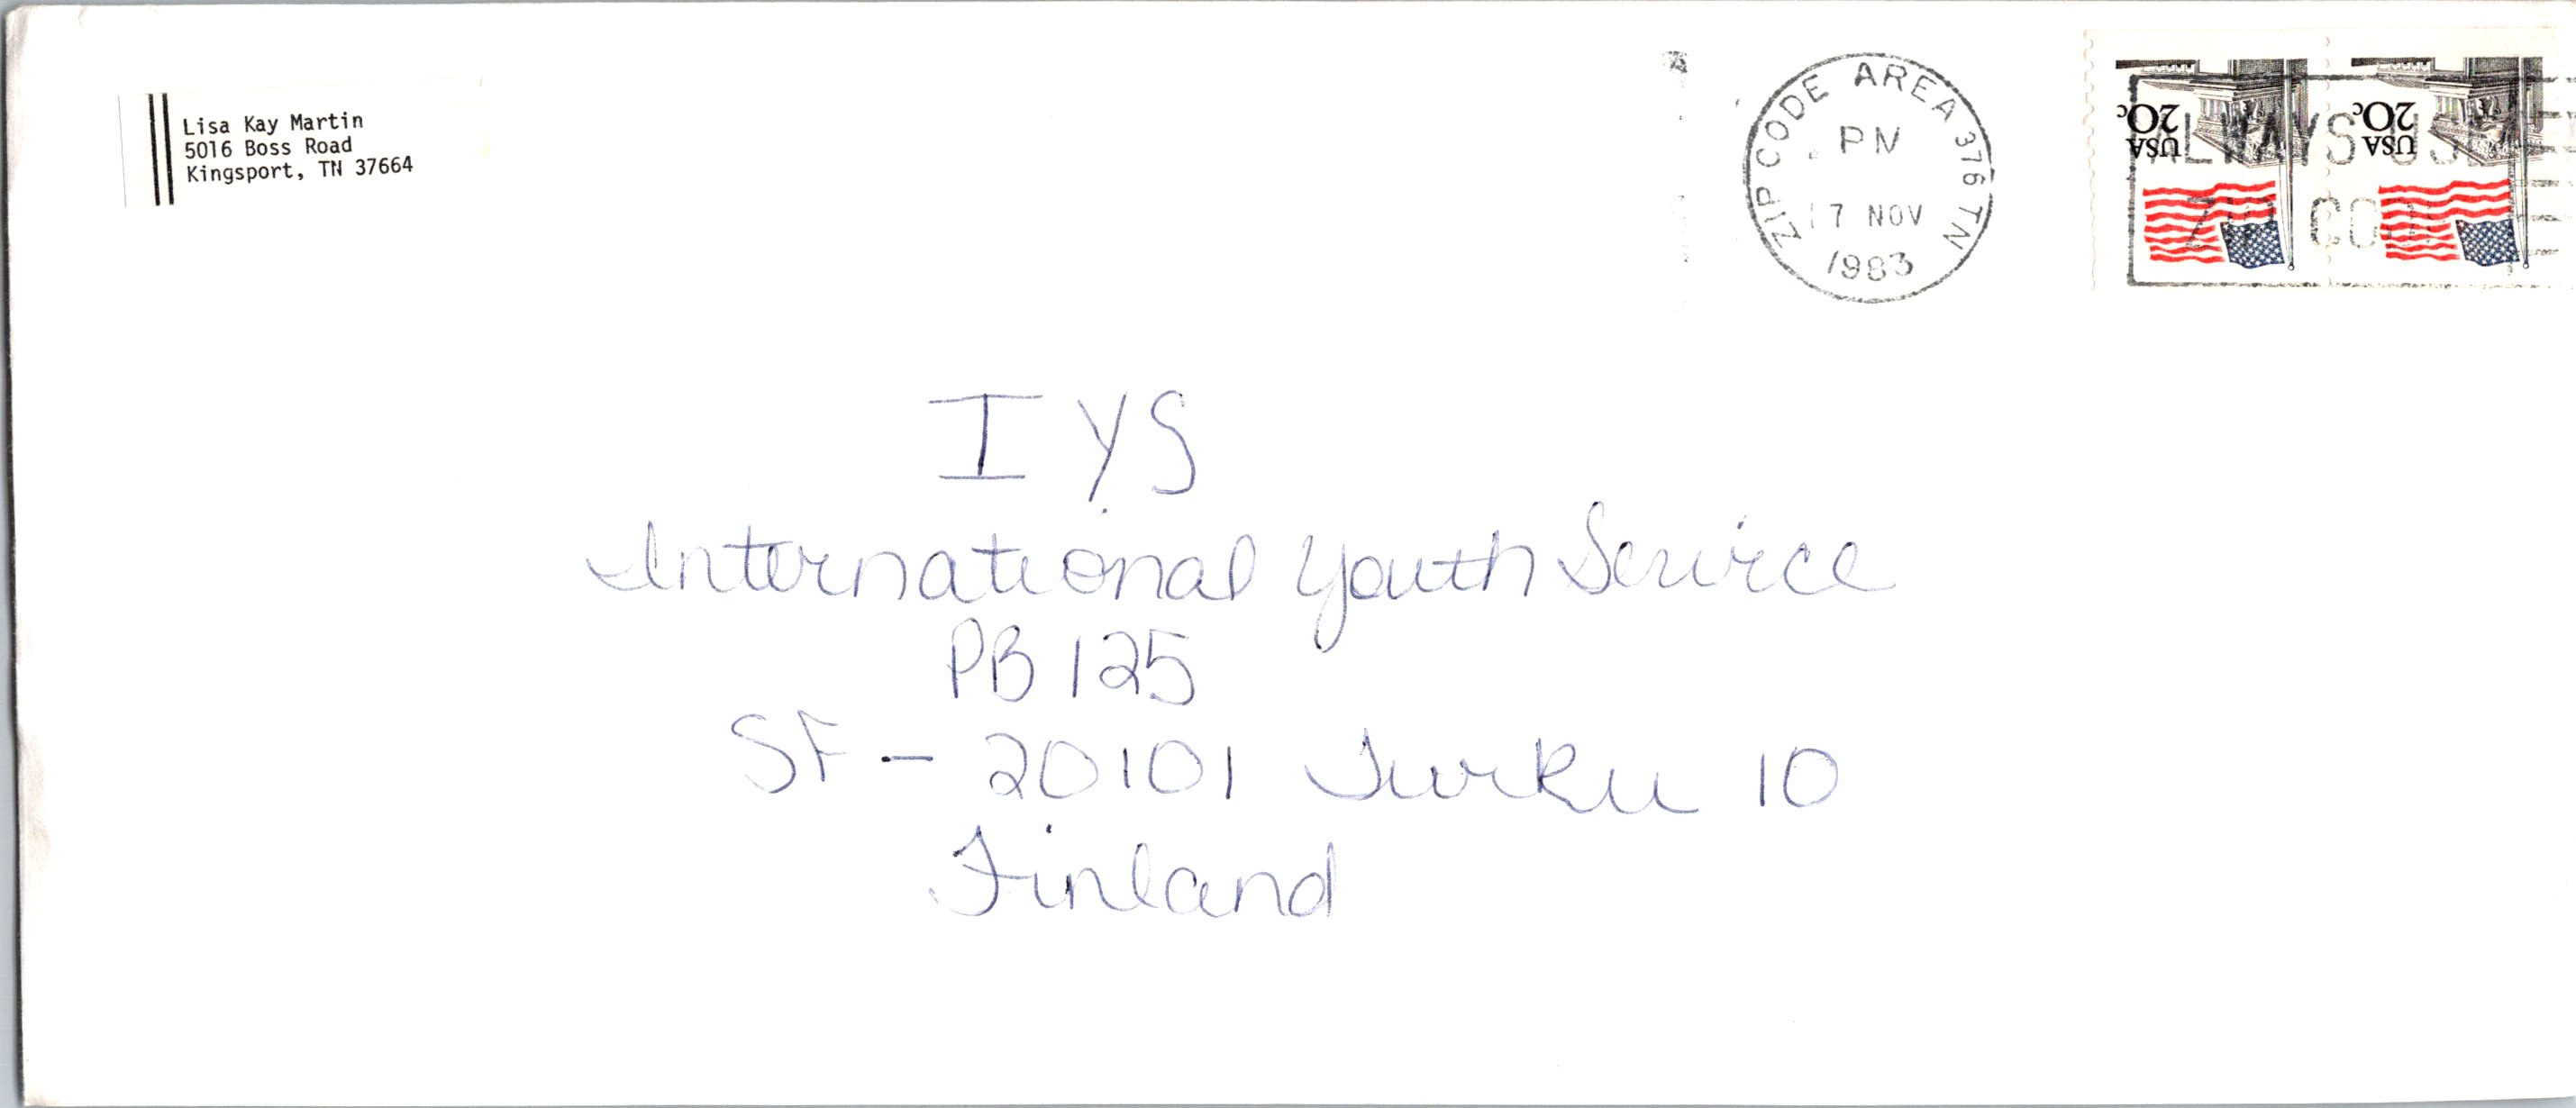 Lisa Kay Martin
5016 Boss Road
Kingsport, TN 37664
ZIP CODE AREA 376 TN
PM
17 NOV
1983
USA 20c
USA 20c
ALWAYS USE
ZIP CODE
IYS
International Youth Service
PB 125
SF - 20101 Turku 10
Finland